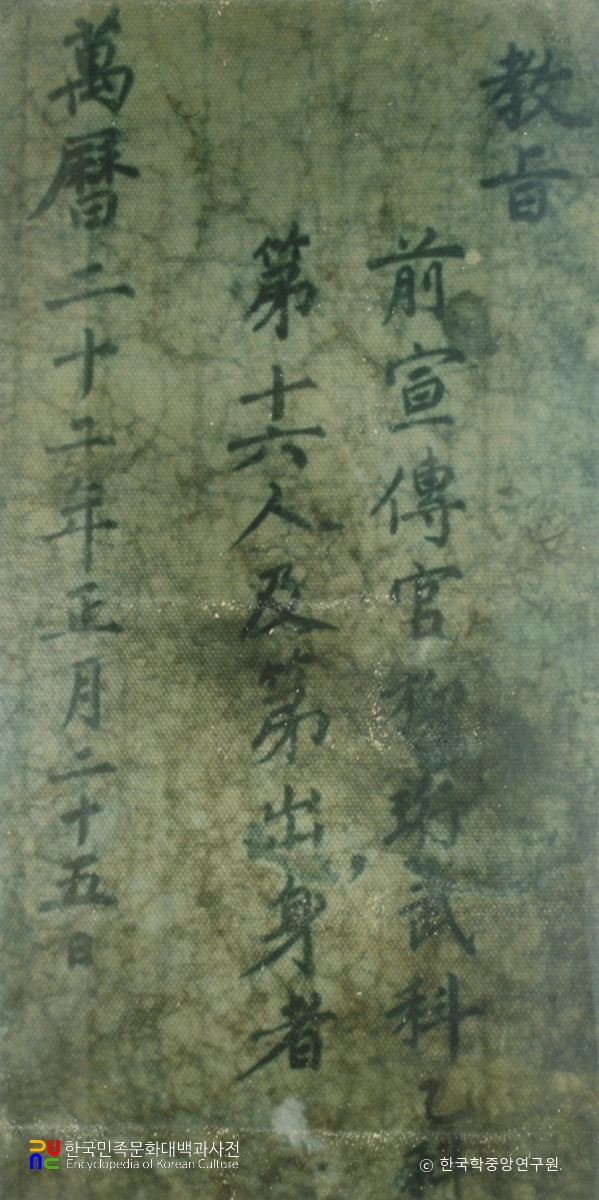 教旨
前宣傳官柳珩武科乙科
第十六人及第出身者
萬曆二十二年正月二十五日
한국민족문화대백과사전
Encyclopedia of Korean Culture
© 한국학중앙연구원.